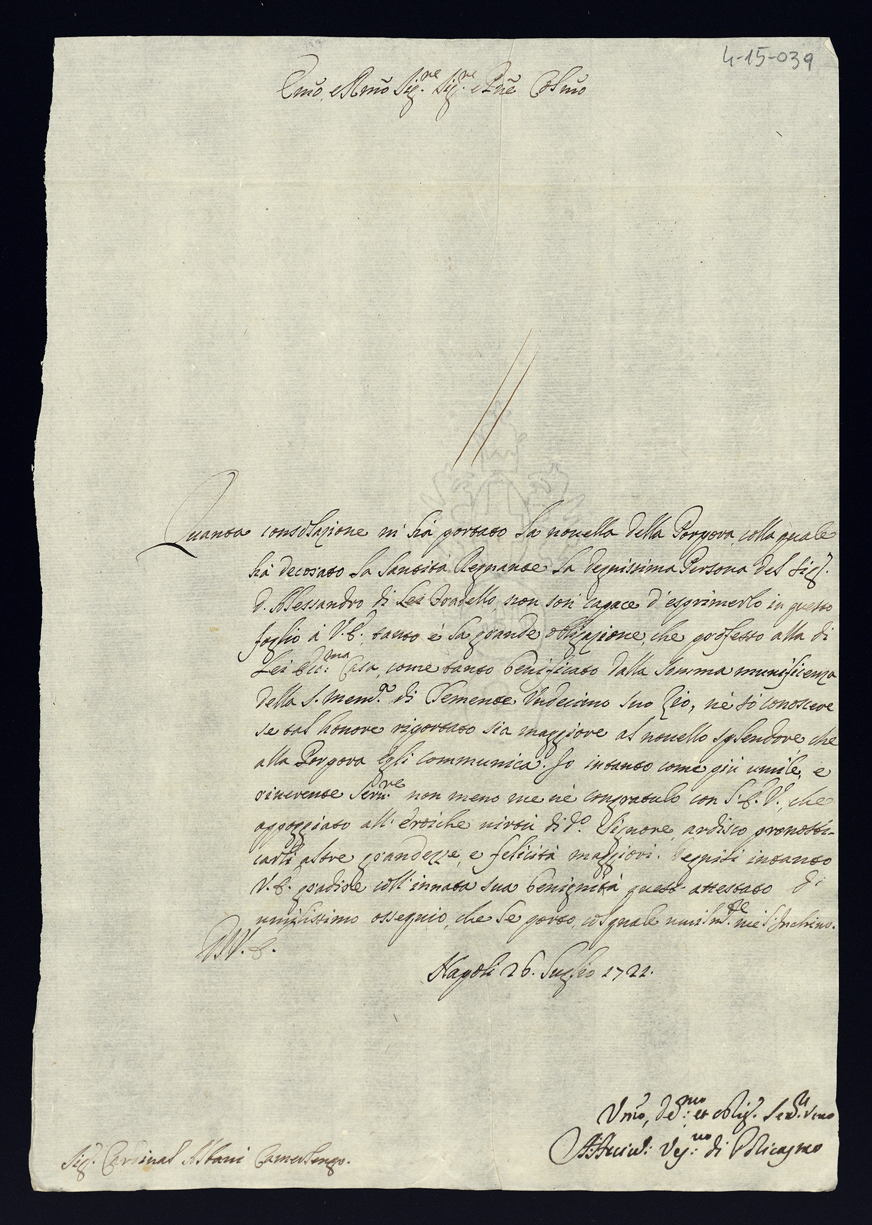 4-15-039
Em̃o, e Rm̃o Sig.re Sig.re e Pñe Col̃mo
Quanta consolazione m'hà portato la novella della Porpora, colla quale
hà decorato la Santità Regnante la degnissima Persona del Sig.r
D. Alessandro di Lei Fratello, non son capace d'esprimerlo in questo
foglio à V. E. tanto è la grande obligazione, che professo alla di
Lei Ecc.ma Casa, come tanto benificato dalla somma munificenza
della S. mem.a di Clemente Undecimo suo Zio, nè sò conoscere
se tal honore riportato sia maggiore al novello splendore, che
alla Porpora Egli communica. Io intanto come più umile, e
riverente Serv.re non meno me nè congratulo con L'E. V., che
appoggiato all'Eroiche virtù di d.o Signore, ardisco pronosti-
carli altre grandezze, e felicità maggiori. Degnisi intanto
V. E. gradire coll'innata sua benignità quest'attestato di
umilissimo ossequio, che Le porto, col quale umilm.te me l'Inchino.
D. V. E.
Napoli 26. Luglio 1721.
Um̃o, de.mo et oblig. Ser.re vero
di Policastro
Sig.r Cardinal Albani Camerlengo.